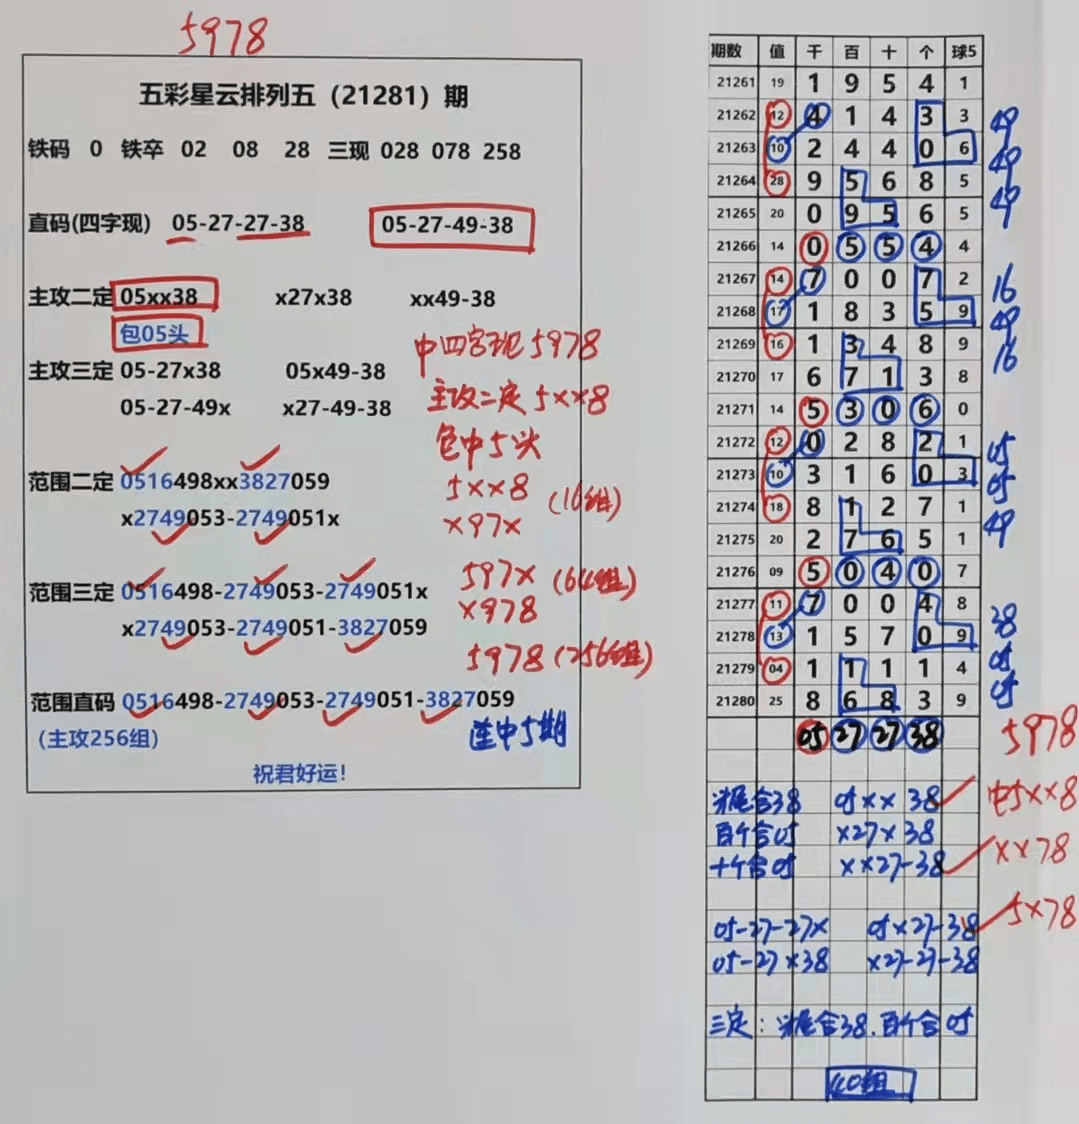 5978
五彩星云排列五（21281）期
铁码 0 铁卒 02 08 28 三现 028 078 258
直码(四字现) 05-27-27-38 05-27-49-38
主攻二定 05xx38 x27x38 xx49-38
包05头
主攻三定 05-27x38 05x49-38
05-27-49x x27-49-38
范围二定 0516498xx3827059
x2749053-2749051x
范围三定 0516498-2749053-2749051x
x2749053-2749051-3827059
范围直码 0516498-2749053-2749051-3827059
(主攻256组)
祝君好运！
中四字现5978
主攻二定5××8
包中5头
5××8 (16组)
×97×
597× (64组)
×978
5978 (256组)
连中5期
期数 值 千 百 十 个 球5
21261 19 1 9 5 4 1
21262 12 4 1 4 3 3
21263 10 2 4 4 0 6
21264 28 9 5 6 8 5
21265 20 0 9 5 6 5
21266 14 0 5 5 4 4
21267 14 7 0 0 7 2
21268 17 1 8 3 5 9
21269 16 1 3 4 8 9
21270 17 6 7 1 3 8
21271 14 5 3 0 6 0
21272 12 0 2 8 2 1
21273 10 3 1 6 0 3
21274 18 8 1 2 7 1
21275 20 2 7 6 5 1
21276 09 5 0 4 0 7
21277 11 7 0 0 4 8
21278 13 1 5 7 0 9
21279 04 1 1 1 1 4
21280 25 8 6 8 3 9
05 27 27 38
49
49
49
16
49
16
05
05
49
38
05
05
5978
头尾合38 05×× 38 中5××8
百个合05 ×27× 38
十个合05 ××27-38 ××78
05-27-27× 05×27-38 5×78
05-27×38 ×27-27-38
三定：头尾合38.百个合05
40组